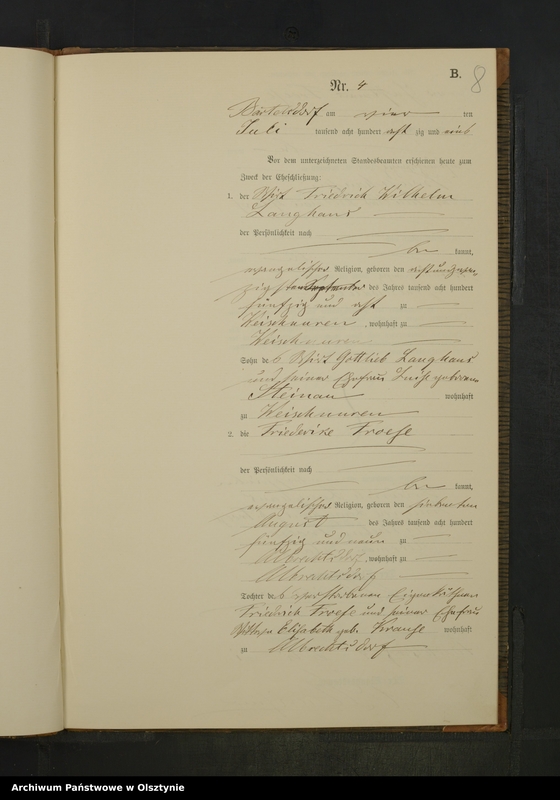 B.
8
Nr. 4
Bartelsdorf am vier ten
Juli tausend acht hundert acht zig und eins
Vor dem unterzeichneten Standesbeamten erschienen heute zum
Zweck der Eheschließung:
1. der Wirt Friedrich Wilhelm
Langhans
der Persönlichkeit nach
be kannt,
evangelischer Religion, geboren den achtundzwan
zigsten September des Jahres tausend acht hundert
fünfzig und acht zu
Keischnuren, wohnhaft zu
Keischnuren
Sohn des Wirt Gottlieb Langhans
und seiner Ehefrau Luise geborene
Steinau wohnhaft
zu Keischnuren
2. die Friederike Troese
der Persönlichkeit nach
be kannt,
evangelischer Religion, geboren den siebenten
August des Jahres tausend acht hundert
fünfzig und neun zu
Albrechtsdorf, wohnhaft zu
Albrechtsdorf
Tochter des verstorbenen Eigenkäthner
Friedrich Troese und seiner Ehefrau
Elisabeth geb. Krause wohnhaft
zu Albrechtsdorf
Archiwum Państwowe w Olsztynie